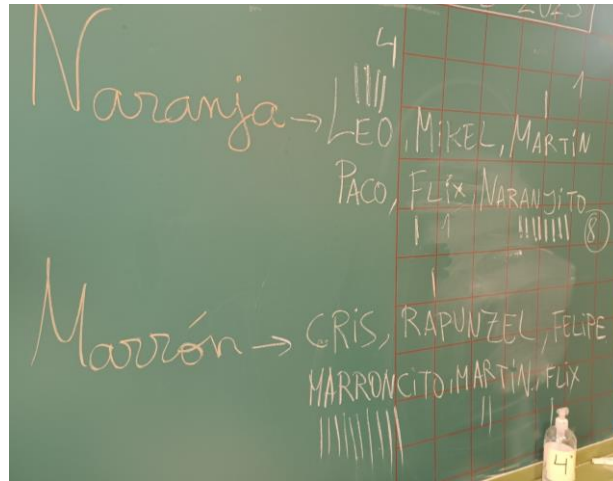 2023
4
1
Naranja → LEO, MIKEL, MARTÍN
PACO, FLIX, NARANJITO
1 8
Marrón → CRIS, RAPUNZEL, FELIPE
MARRONCITO, MARTÍN, FLIX
4